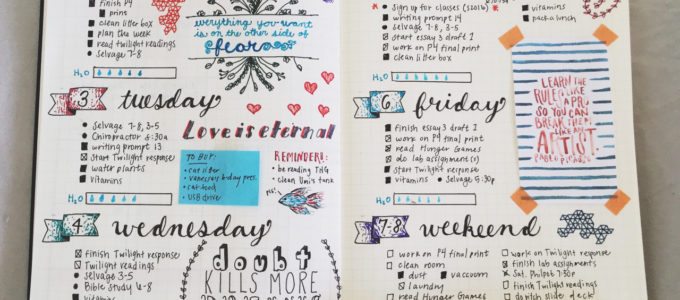 finish P4
print
clean litter box
plan the week
read twilight readings
Selvage 7-8
everything you want
is on the other side of
fear
H2O
3 tuesday
Selvage 7-8, 3-5
Chiropractor 5:30a
writing prompt 13
Start Twilight response
water plants
vitamins
H2O
Love is eternal
TO BUY:
cat litter
vanessa's b-day pres.
cat food
USB drive
REMINDER!:
be reading THG
clean Umi's tank
4 wednesday
finish Twilight response
Twilight readings
Selvage 3-5
Bible Study 6-8
vitamins
doubt
KILLS MORE
sign up for classes (S2016)
writing prompt 14
start essay 3 draft 1
work on P4 final print
clean litter box
vitamins
pack a lunch
H2O
6 friday
finish essay 3 draft 1
work on P4 final print
read Hunger Games
do lab assignment(s)
start Twilight response
vitamins
Selvage 5:30p
H2O
LEARN THE
RULES LIKE
A PRO,
SO YOU CAN
BREAK THEM
LIKE AN
ARTIST.
PABLO PICASSO
7-8 weekend
work on P4 final print
clean room
dust
vacuum
laundry
read Hunger Games
work on Twilight response
finish lab assignments
Sat. Philpot 7:30p
finish Twilight readings
do nitsh slide deck